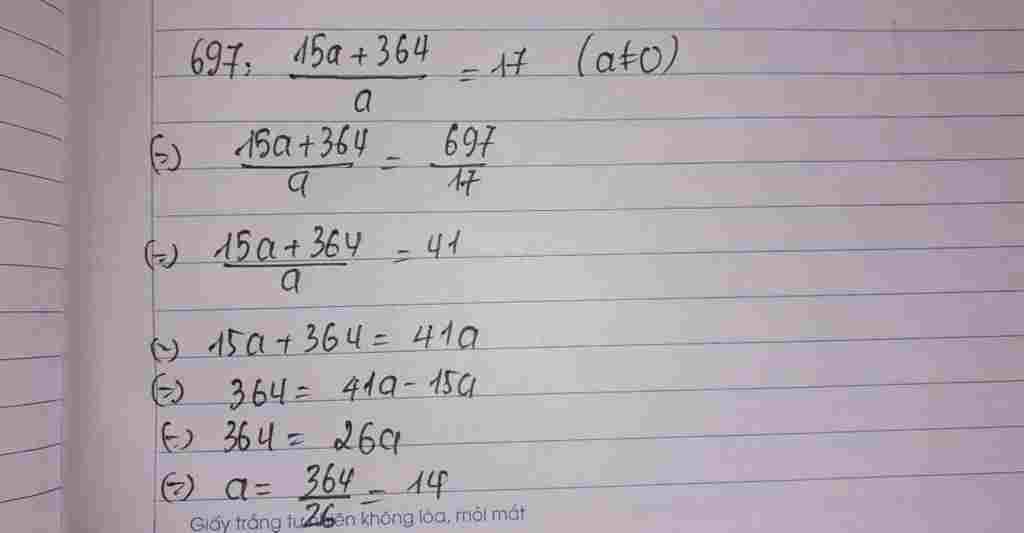 697: (15a + 364)/a = 17 (a ≠ 0)
(=) (15a + 364)/a = 697/17
(=) (15a + 364)/a = 41
(=) 15a + 364 = 41a
(=) 364 = 41a - 15a
(=) 364 = 26a
(=) a = 364/26 = 14
Giấy trắng tự nhiên không lóa, mỏi mắt